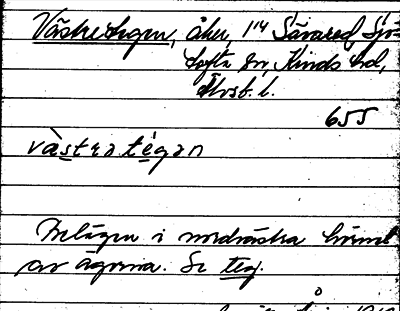 Västretegen, åker, 1/4 Sävared, Sjö-
tofta sn, Kinds hd,
Älvsb. l.
655
västra tegan
Belägen i nordvästra hörnet
av ägorna. Se teg.